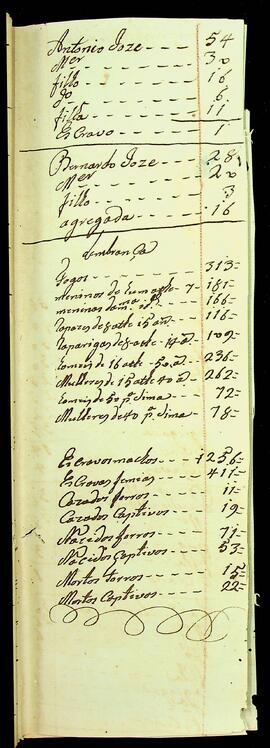 Antonio Joze - - - 54
Mer - - - 30
fillo - - - 16
Jo - - - 6
filla - - - 11
Escravo - - - 1
Bernardo Joze - - - 28
Mer - - - 20
fillo - - - 3
agregada - - - 16
Lembrança
Fogos - - - 313
meninos de hum athe 7 - 181
meninas - - - 166
Rapazes de 8 athe 15 an - 116
Raparigas de 8 athe 14 a - 109
homeis de 16 athe 50 a - 236
Mulheres de 15 athe 40 a - 262
homeis de 50 pa sima - - 72
Mulheres de 40 pa sima - - 78
Escravos machos - - - 1256
Escravas femeas - - - 411
Cazados forros - - - 11
Cazados Captivos - - - 19
Nacidos forros - - - 71
Nacidos Captivos - - - 53
Mortos forros - - - 15
Mortos Captivos - - - 22